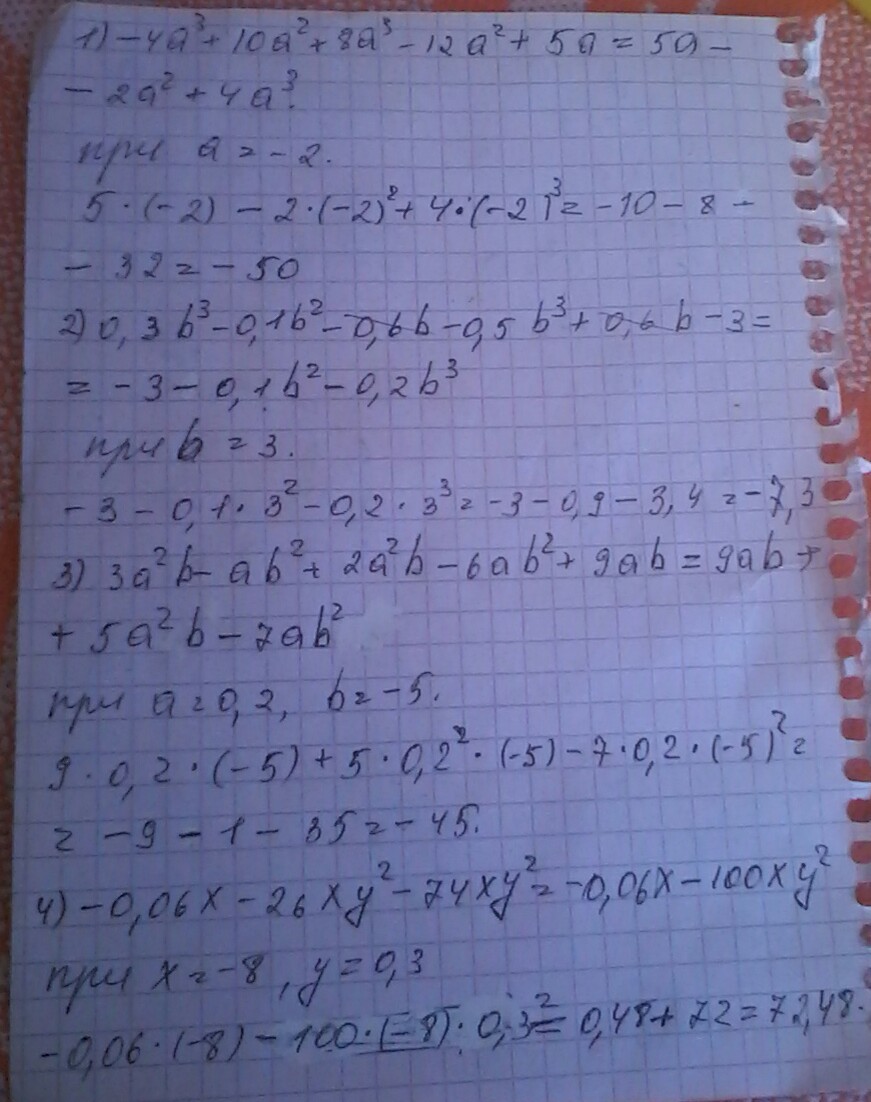 1) -4a³+10a²+8a³-12a²+5a=5a-
-2a²+4a³.
при a=-2.
5·(-2)-2·(-2)²+4·(-2)³=-10-8-
-32=-50
2) 0,3b³-0,1b²-0,6b-0,5b³+0,6b-3=
=-3-0,1b²-0,2b³
при b=3.
-3-0,1·3²-0,2·3³=-3-0,9-3,4=-7,3
3) 3a²b-ab²+2a²b-6ab²+9ab=9ab+
+5a²b-7ab²
при a=0,2, b=-5.
9·0,2·(-5)+5·0,2²·(-5)-7·0,2·(-5)²=
=-9-1-35=-45.
4) -0,06x-26xy²-74xy²=-0,06x-100xy²
при x=-8, y=0,3
-0,06·(-8)-100·(-8)·0,3²=0,48+72=72,48.